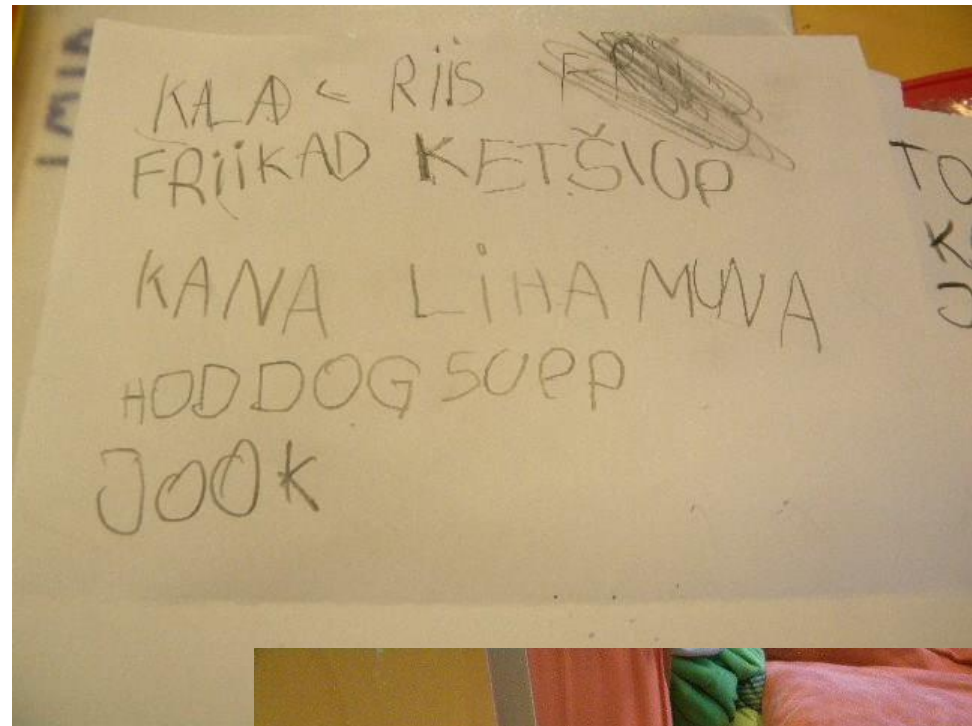 KALA < RIIS
FRIIKAD KETŠUP
KANA LIHA MUNA
HODDOG SUPP
JOOK
TO
K
J